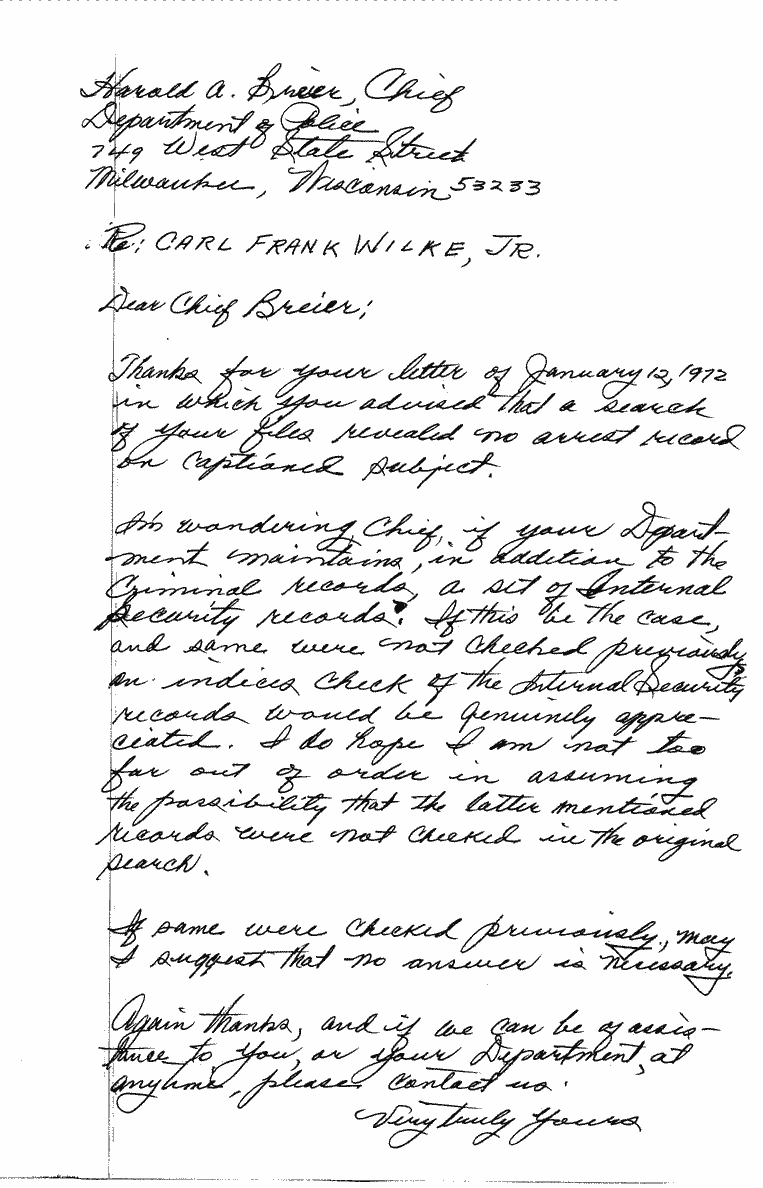 Harold A. Breier, Chief
Department of Police
749 West State Street
Milwaukee, Wisconsin 53233
Re: CARL FRANK WILKE, JR.
Dear Chief Breier:
Thanks for your letter of January 12, 1972
in which you advised that a search
of your files revealed no arrest record
on captioned subject.
I'm wondering, Chief, if your Depart-
ment maintains, in addition to the
Criminal records, a set of Internal
Security records. If this be the case,
and same were not checked previously,
an indices check of the Internal Security
records would be genuinely appre-
ciated. I do hope I am not too
far out of order in assuming
the possibility that the latter mentioned
records were not checked in the original
search.
If same were checked previously, may
I suggest that no answer is necessary.
Again thanks, and if we can be of assis-
tance to you, or your Department, at
anytime, please contact us.
Very truly yours